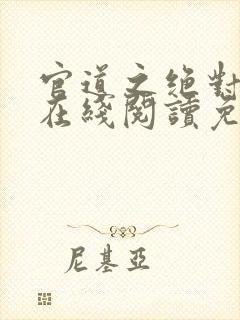 官道之绝對
在綫閱讀免
尼基亞